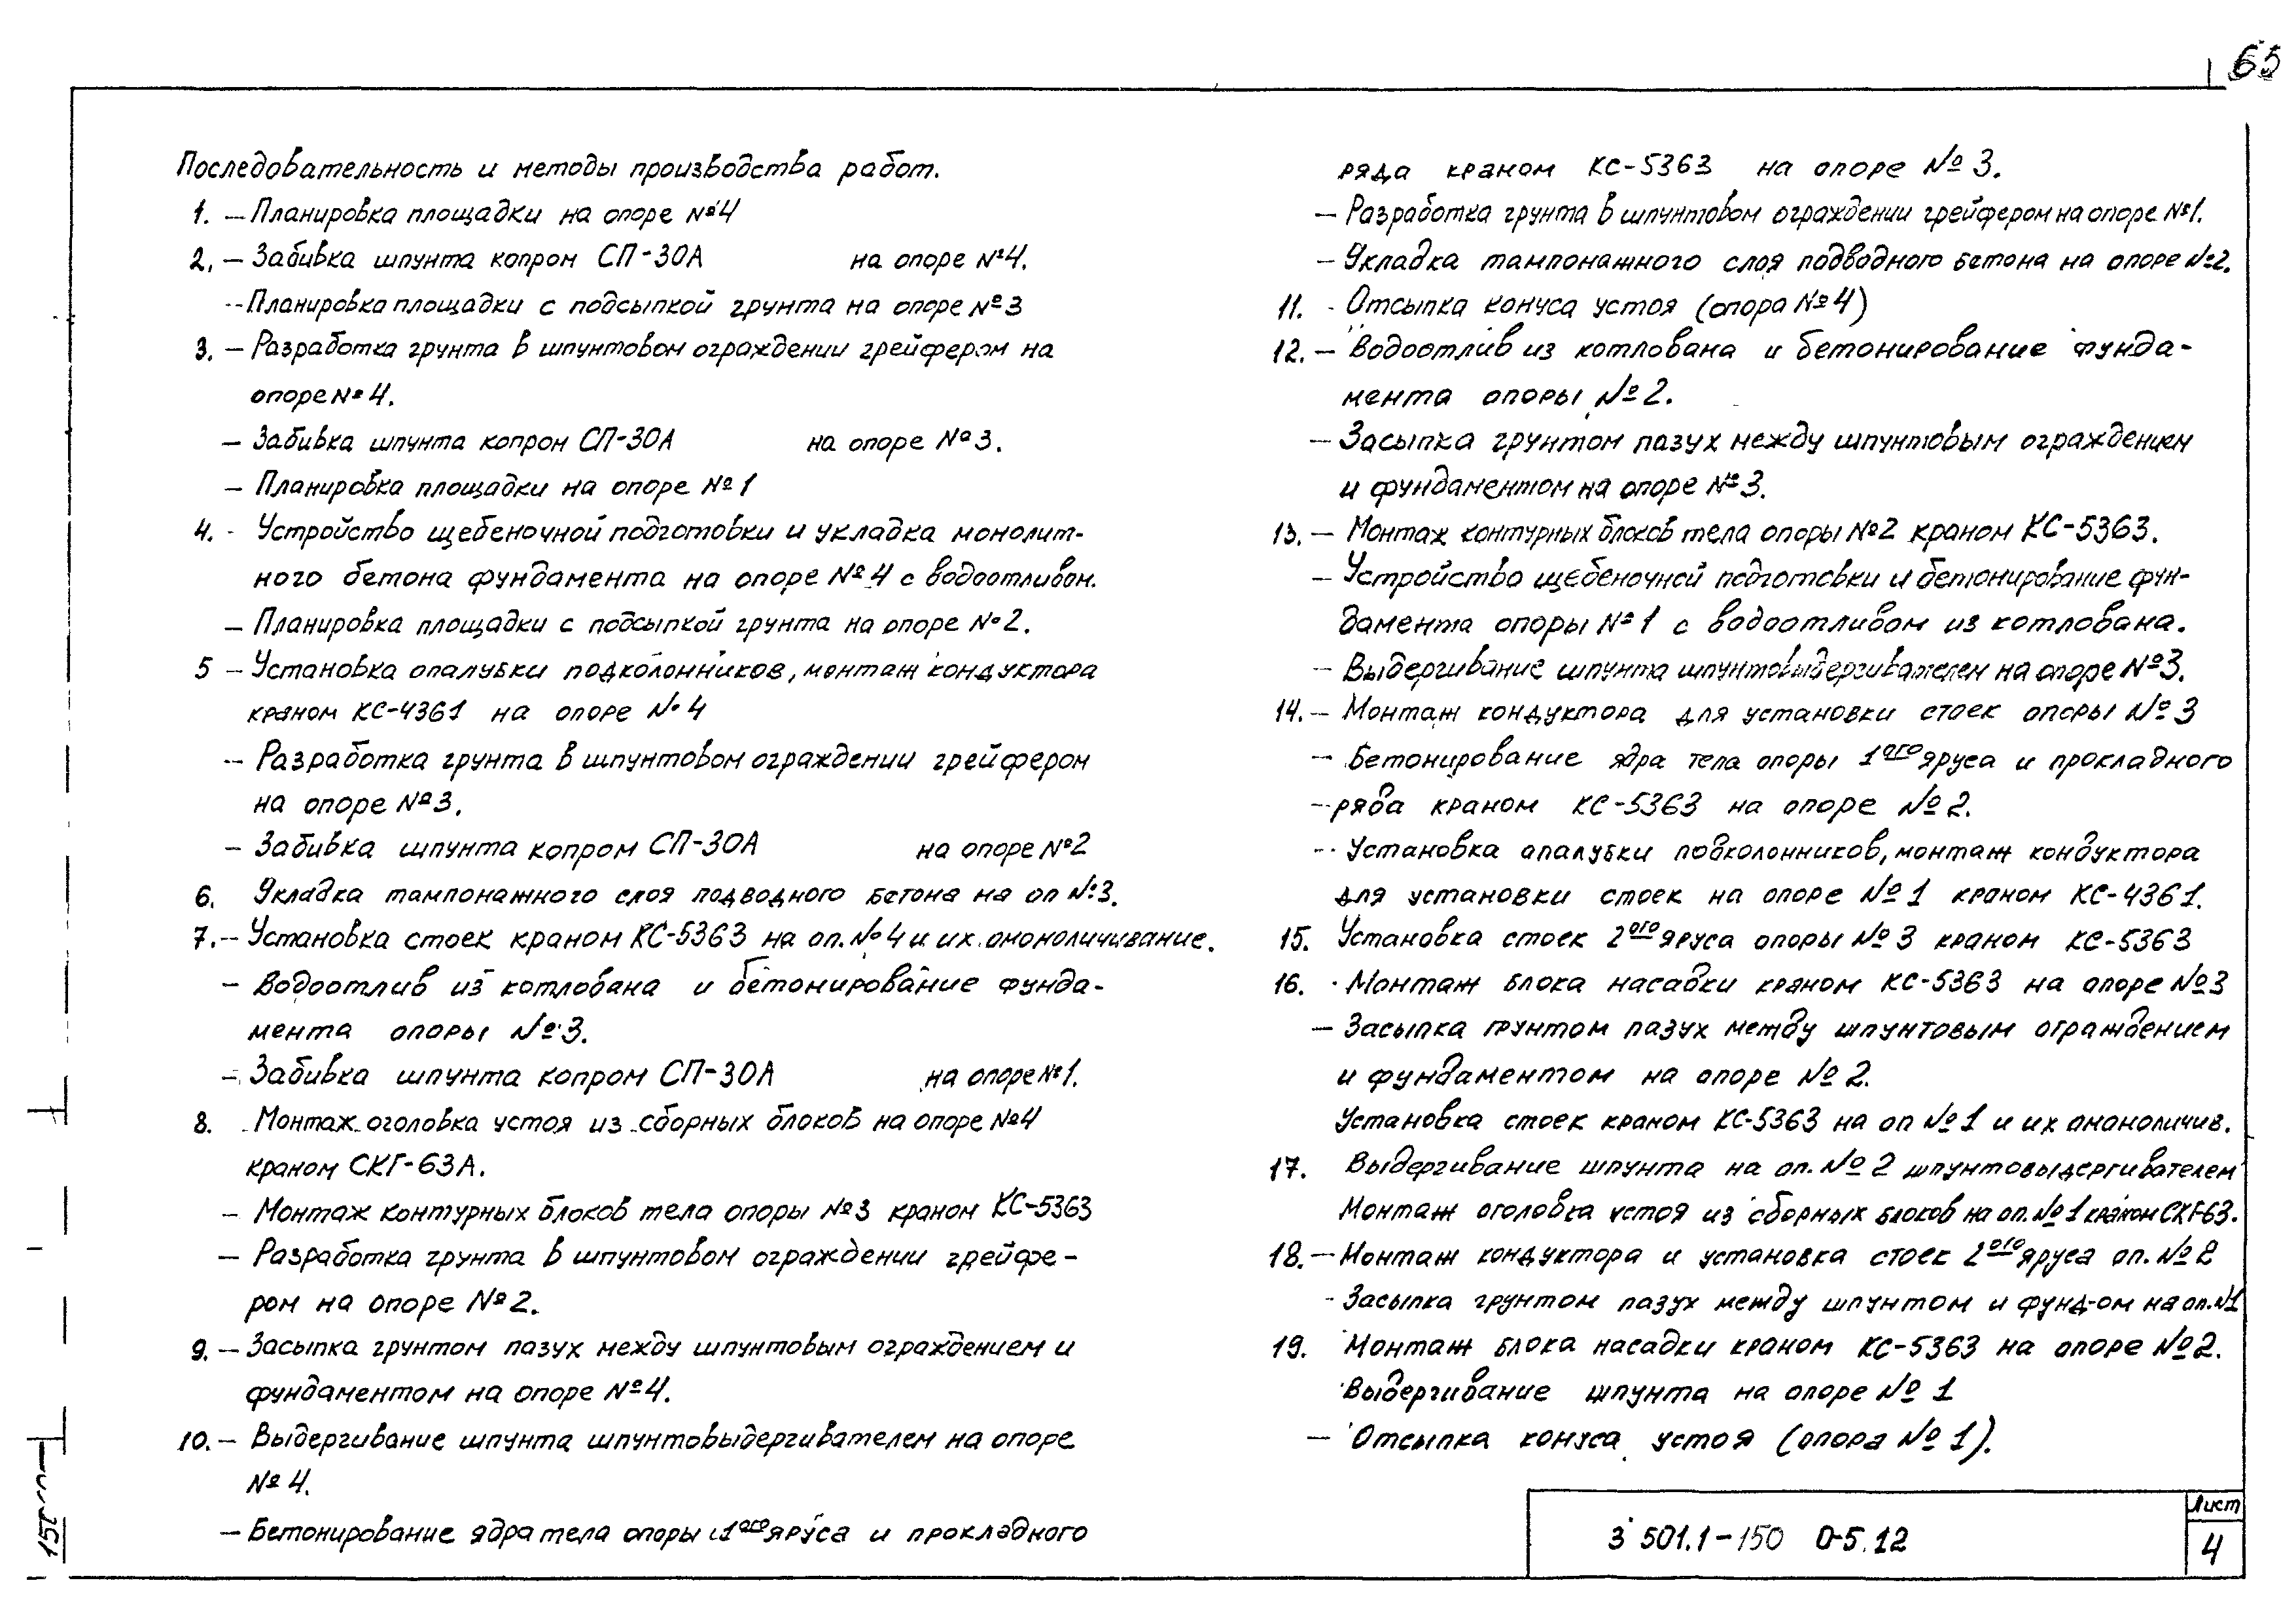 65
Последовательность и методы производства работ.
1. – Планировка площадки на опоре №4
2. – Забивка шпунта копром СП-30А на опоре №4.
– Планировка площадки с подсыпкой грунта на опоре №3
3. – Разработка грунта в шпунтовом ограждении грейфером на
опоре №4.
– Забивка шпунта копром СП-30А на опоре №3.
– Планировка площадки на опоре №1
4. - Устройство щебеночной подготовки и укладка монолит-
ного бетона фундамента на опоре №4 с водоотливом.
– Планировка площадки с подсыпкой грунта на опоре №2.
5 – Установка опалубки подколонников, монтаж кондуктора
краном КС-4361 на опоре №4
– Разработка грунта в шпунтовом ограждении грейфером
на опоре №3.
– Забивка шпунта копром СП-30А на опоре №2
6. Укладка тампонажного слоя подводного бетона на оп №3.
7. – Установка стоек краном КС-5363 на оп. №4 и их омоноличивание.
– Водоотлив из котлована и бетонирование фунда-
мента опоры №3.
– Забивка шпунта копром СП-30А на опоре №1.
8. Монтаж оголовка устоя из сборных блоков на опоре №4
краном СКГ-63А.
– Монтаж контурных блоков тела опоры №3 краном КС-5363
– Разработка грунта в шпунтовом ограждении грейфе-
ром на опоре №2.
9. – Засыпка грунтом пазух между шпунтовым ограждением и
фундаментом на опоре №4.
10. – Выдергивание шпунта шпунтовыдергивателем на опоре
№4.
– Бетонирование ядра тела опоры 1ого яруса и прокладного
ряда краном КС-5363 на опоре №3.
– Разработка грунта в шпунтовом ограждении грейфером на опоре №1.
– Укладка тампонажного слоя подводного бетона на опоре №2.
11. - Отсыпка конуса устоя (опора №4)
12. – Водоотлив из котлована и бетонирование фунда-
мента опоры №2.
– Засыпка грунтом пазух между шпунтовым ограждением
и фундаментом на опоре №3.
13. – Монтаж контурных блоков тела опоры №2 краном КС-5363.
– Устройство щебеночной подготовки и бетонирование фун-
дамента опоры №1 с водоотливом из котлована.
– Выдергивание шпунта шпунтовыдергивателем на опоре №3.
14. – Монтаж кондуктора для установки стоек опоры №3
– Бетонирование ядра тела опоры 1ого яруса и прокладного
– ряда краном КС-5363 на опоре №2.
– Установка опалубки подколонников, монтаж кондуктора
для установки стоек на опоре №1 краном КС-4361.
15. Установка стоек 2ого яруса опоры №3 краном КС-5363
16. - Монтаж блока насадки краном КС-5363 на опоре №3
– Засыпка грунтом пазух между шпунтовым ограждением
и фундаментом на опоре №2.
Установка стоек краном КС-5363 на оп №1 и их омоноличив.
17. Выдергивание шпунта на оп. №2 шпунтовыдергивателем
Монтаж оголовка устоя из сборных блоков на оп. №1 краном СКГ-63.
18. – Монтаж кондуктора и установка стоек 2ого яруса оп. №2
- Засыпка грунтом пазух между шпунтом и фунд-ом на оп. №1
19. Монтаж блока насадки краном КС-5363 на опоре №2.
Выдергивание шпунта на опоре №1
– Отсыпка конуса устоя (опора №1).
3 501.1-150 0-5.12
Лист
4